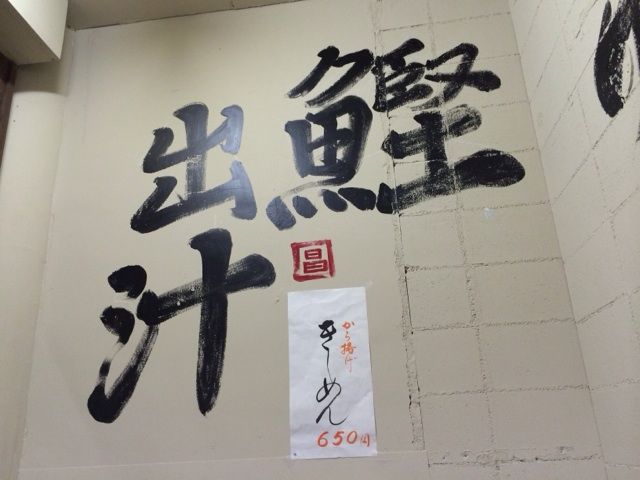 鰹
出汁
昌
から揚げ
きしめん
650